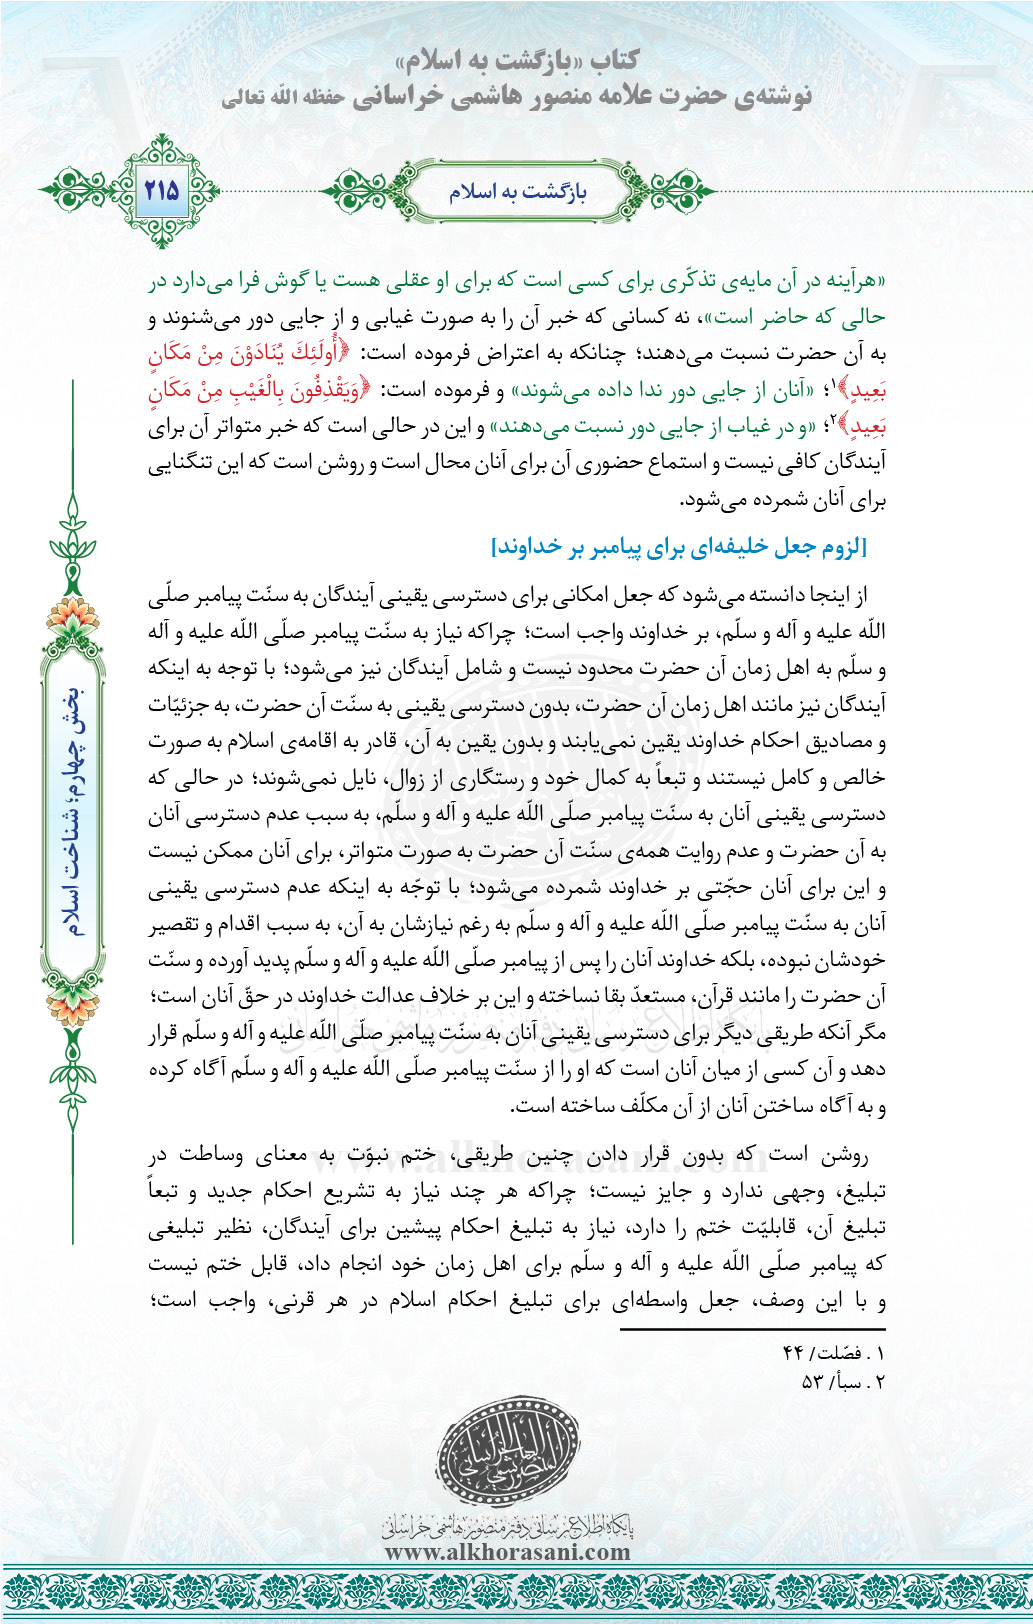 کتاب «بازگشت به اسلام»
نوشته‌ی حضرت علامه منصور هاشمی خراسانی حفظه الله تعالی
بازگشت به اسلام
۲۱۵
«هرآینه در آن مایه‌ی تذکّری برای کسی است که برای او عقلی هست یا گوش فرا می‌دارد در
حالی که حاضر است»، نه کسانی که خبر آن را به صورت غیابی و از جایی دور می‌شنوند و
به آن حضرت نسبت می‌دهند؛ چنانکه به اعتراض فرموده است: ﴿أُولَئِكَ يُنَادَوْنَ مِنْ مَكَانٍ
بَعِيدٍ﴾۱؛ «آنان از جایی دور ندا داده می‌شوند» و فرموده است: ﴿وَيَقْذِفُونَ بِالْغَيْبِ مِنْ مَكَانٍ
بَعِيدٍ﴾۲؛ «و در غیاب از جایی دور نسبت می‌دهند» و این در حالی است که خبر متواتر آن برای
آیندگان کافی نیست و استماع حضوری آن برای آنان محال است و روشن است که این تنگنایی
برای آنان شمرده می‌شود.
[لزوم جعل خلیفه‌ای برای پیامبر بر خداوند]
از اینجا دانسته می‌شود که جعل امکانی برای دسترسی یقینی آیندگان به سنّت پیامبر صلّی
اللّه علیه و آله و سلّم، بر خداوند واجب است؛ چراکه نیاز به سنّت پیامبر صلّی اللّه علیه و آله
و سلّم به اهل زمان آن حضرت محدود نیست و شامل آیندگان نیز می‌شود؛ با توجه به اینکه
آیندگان نیز مانند اهل زمان آن حضرت، بدون دسترسی یقینی به سنّت آن حضرت، به جزئیّات
و مصادیق احکام خداوند یقین نمی‌یابند و بدون یقین به آن، قادر به اقامه‌ی اسلام به صورت
خالص و کامل نیستند و تبعاً به کمال خود و رستگاری از زوال، نایل نمی‌شوند؛ در حالی که
دسترسی یقینی آنان به سنّت پیامبر صلّی اللّه علیه و آله و سلّم، به سبب عدم دسترسی آنان
به آن حضرت و عدم روایت همه‌ی سنّت آن حضرت به صورت متواتر، برای آنان ممکن نیست
و این برای آنان حجّتی بر خداوند شمرده می‌شود؛ با توجّه به اینکه عدم دسترسی یقینی
آنان به سنّت پیامبر صلّی اللّه علیه و آله و سلّم به رغم نیازشان به آن، به سبب اقدام و تقصیر
خودشان نبوده، بلکه خداوند آنان را پس از پیامبر صلّی اللّه علیه و آله و سلّم پدید آورده و سنّت
آن حضرت را مانند قرآن، مستعدّ بقا نساخته و این بر خلاف عدالت خداوند در حقّ آنان است؛
مگر آنکه طریقی دیگر برای دسترسی یقینی آنان به سنّت پیامبر صلّی اللّه علیه و آله و سلّم قرار
دهد و آن کسی از میان آنان است که او را از سنّت پیامبر صلّی اللّه علیه و آله و سلّم آگاه کرده
و به آگاه ساختن آنان از آن مکلّف ساخته است.
روشن است که بدون قرار دادن چنین طریقی، ختم نبوّت به معنای وساطت در
تبلیغ، وجهی ندارد و جایز نیست؛ چراکه هر چند نیاز به تشریع احکام جدید و تبعاً
تبلیغ آن، قابلیّت ختم را دارد، نیاز به تبلیغ احکام پیشین برای آیندگان، نظیر تبلیغی
که پیامبر صلّی اللّه علیه و آله و سلّم برای اهل زمان خود انجام داد، قابل ختم نیست
و با این وصف، جعل واسطه‌ای برای تبلیغ احکام اسلام در هر قرنی، واجب است؛
۱ . فصّلت/ ۴۴
۲ . سبأ/ ۵۳
بخش چهارم؛ شناخت اسلام
پایگاه اطلاع رسانی دفتر منصور هاشمی خراسانی
www.alkhorasani.com
پایگاه اطلاع رسانی دفتر منصور هاشمی خراسانی
www.alkhorasani.com